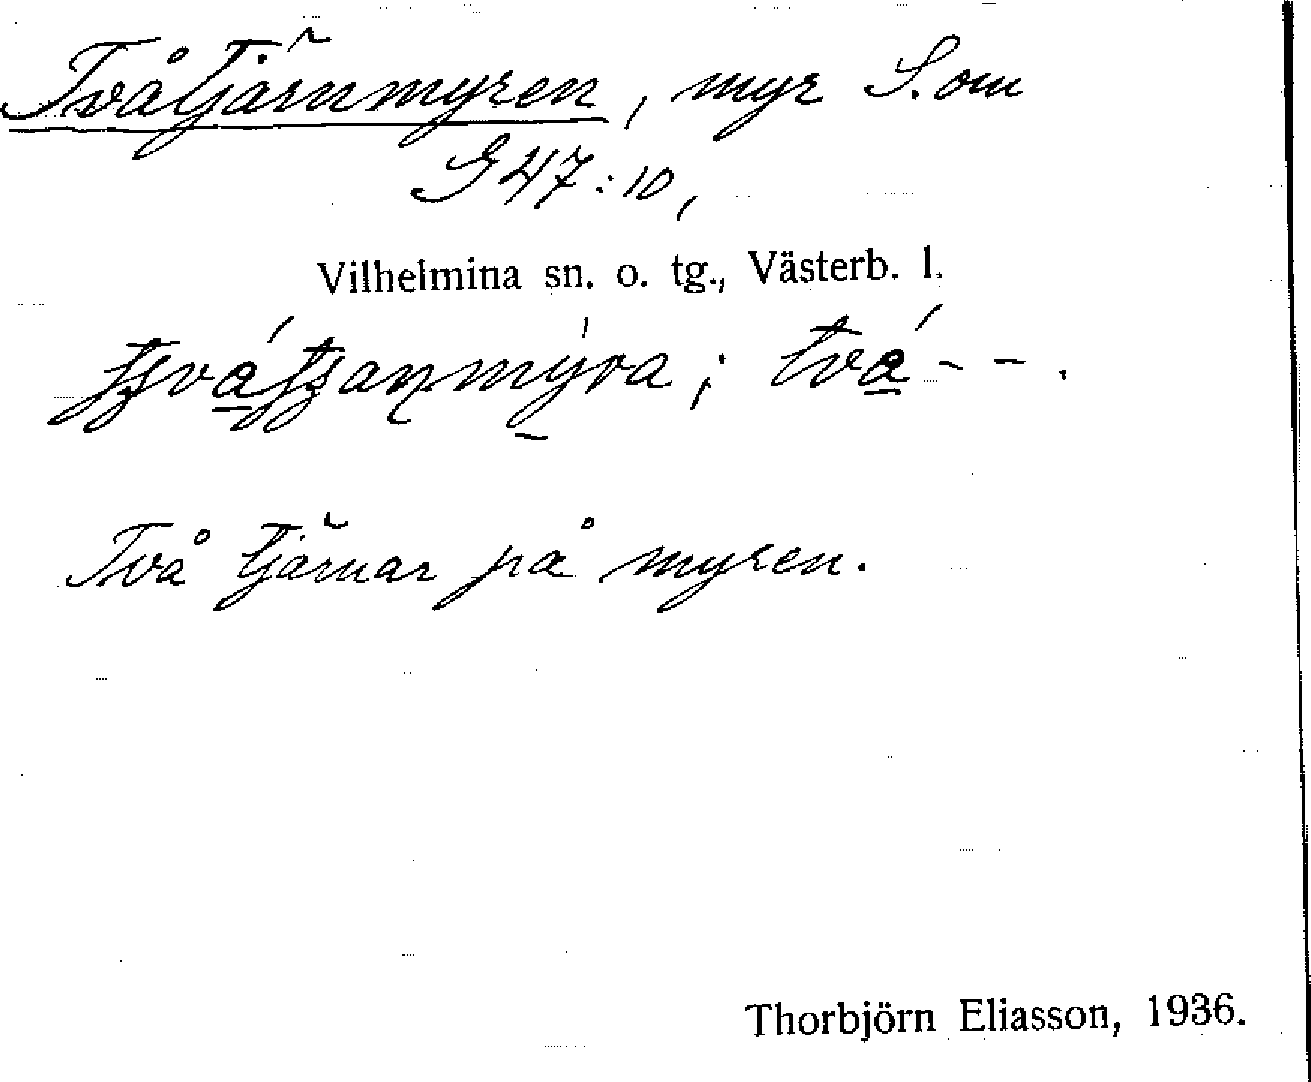 Tvåtjärnmyren, myr S. om
G 47:10,
Vilhelmina sn. o. tg., Västerb. l.
Två tjärnar på myren.
Thorbjörn Eliasson, 1936.